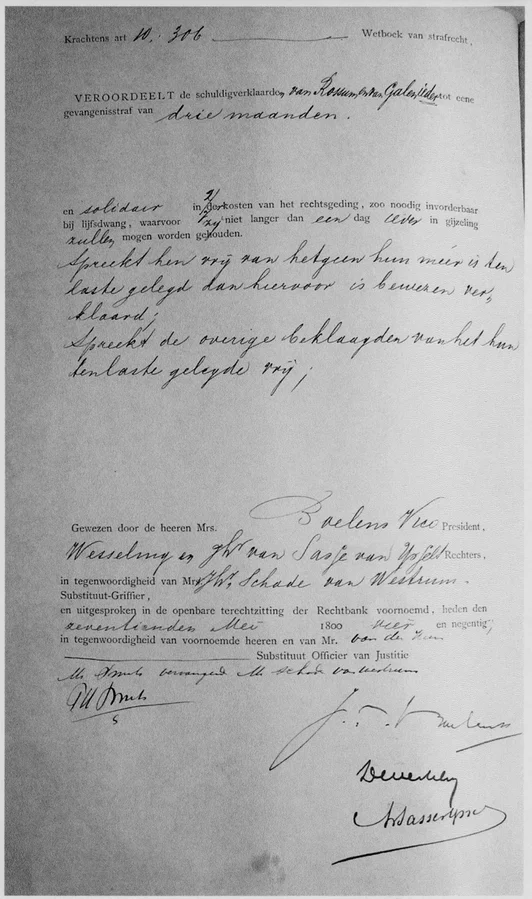 Krachtens art 10, 306 Wetboek van strafrecht,
VEROORDEELT de schuldigverklaarden van Rossum, en van Galen, ieder tot eene
gevangenisstraf van drie maanden.
en solidair in de kosten van het rechtsgeding, zoo noodig invorderbaar
bij lijfsdwang, waarvoor zij niet langer dan een dag ieder in gijzeling
zullen mogen worden gehouden.
Spreekt hen vrij van hetgeen hun méér is ten
laste gelegd dan hiervoor is bewezen ver-
klaard;
Spreekt de overige beklaagden van het hun
tenlaste gelegde vrij;
Gewezen door de heeren Mrs. Boelens Vice President,
Wesseling en Jhr van Sasse van Ysselt Rechters,
in tegenwoordigheid van Mr. Jhr. Schade van Westrum.
Substituut-Griffier,
en uitgesproken in de openbare terechtzitting der Rechtbank voornoemd, heden den
zeventienden Mei 1800 vier en negentig,
in tegenwoordigheid van voornoemde heeren en van Mr. van de
Substituut Officier van Justitie
Mr vervangend Mr Schade van Westrum